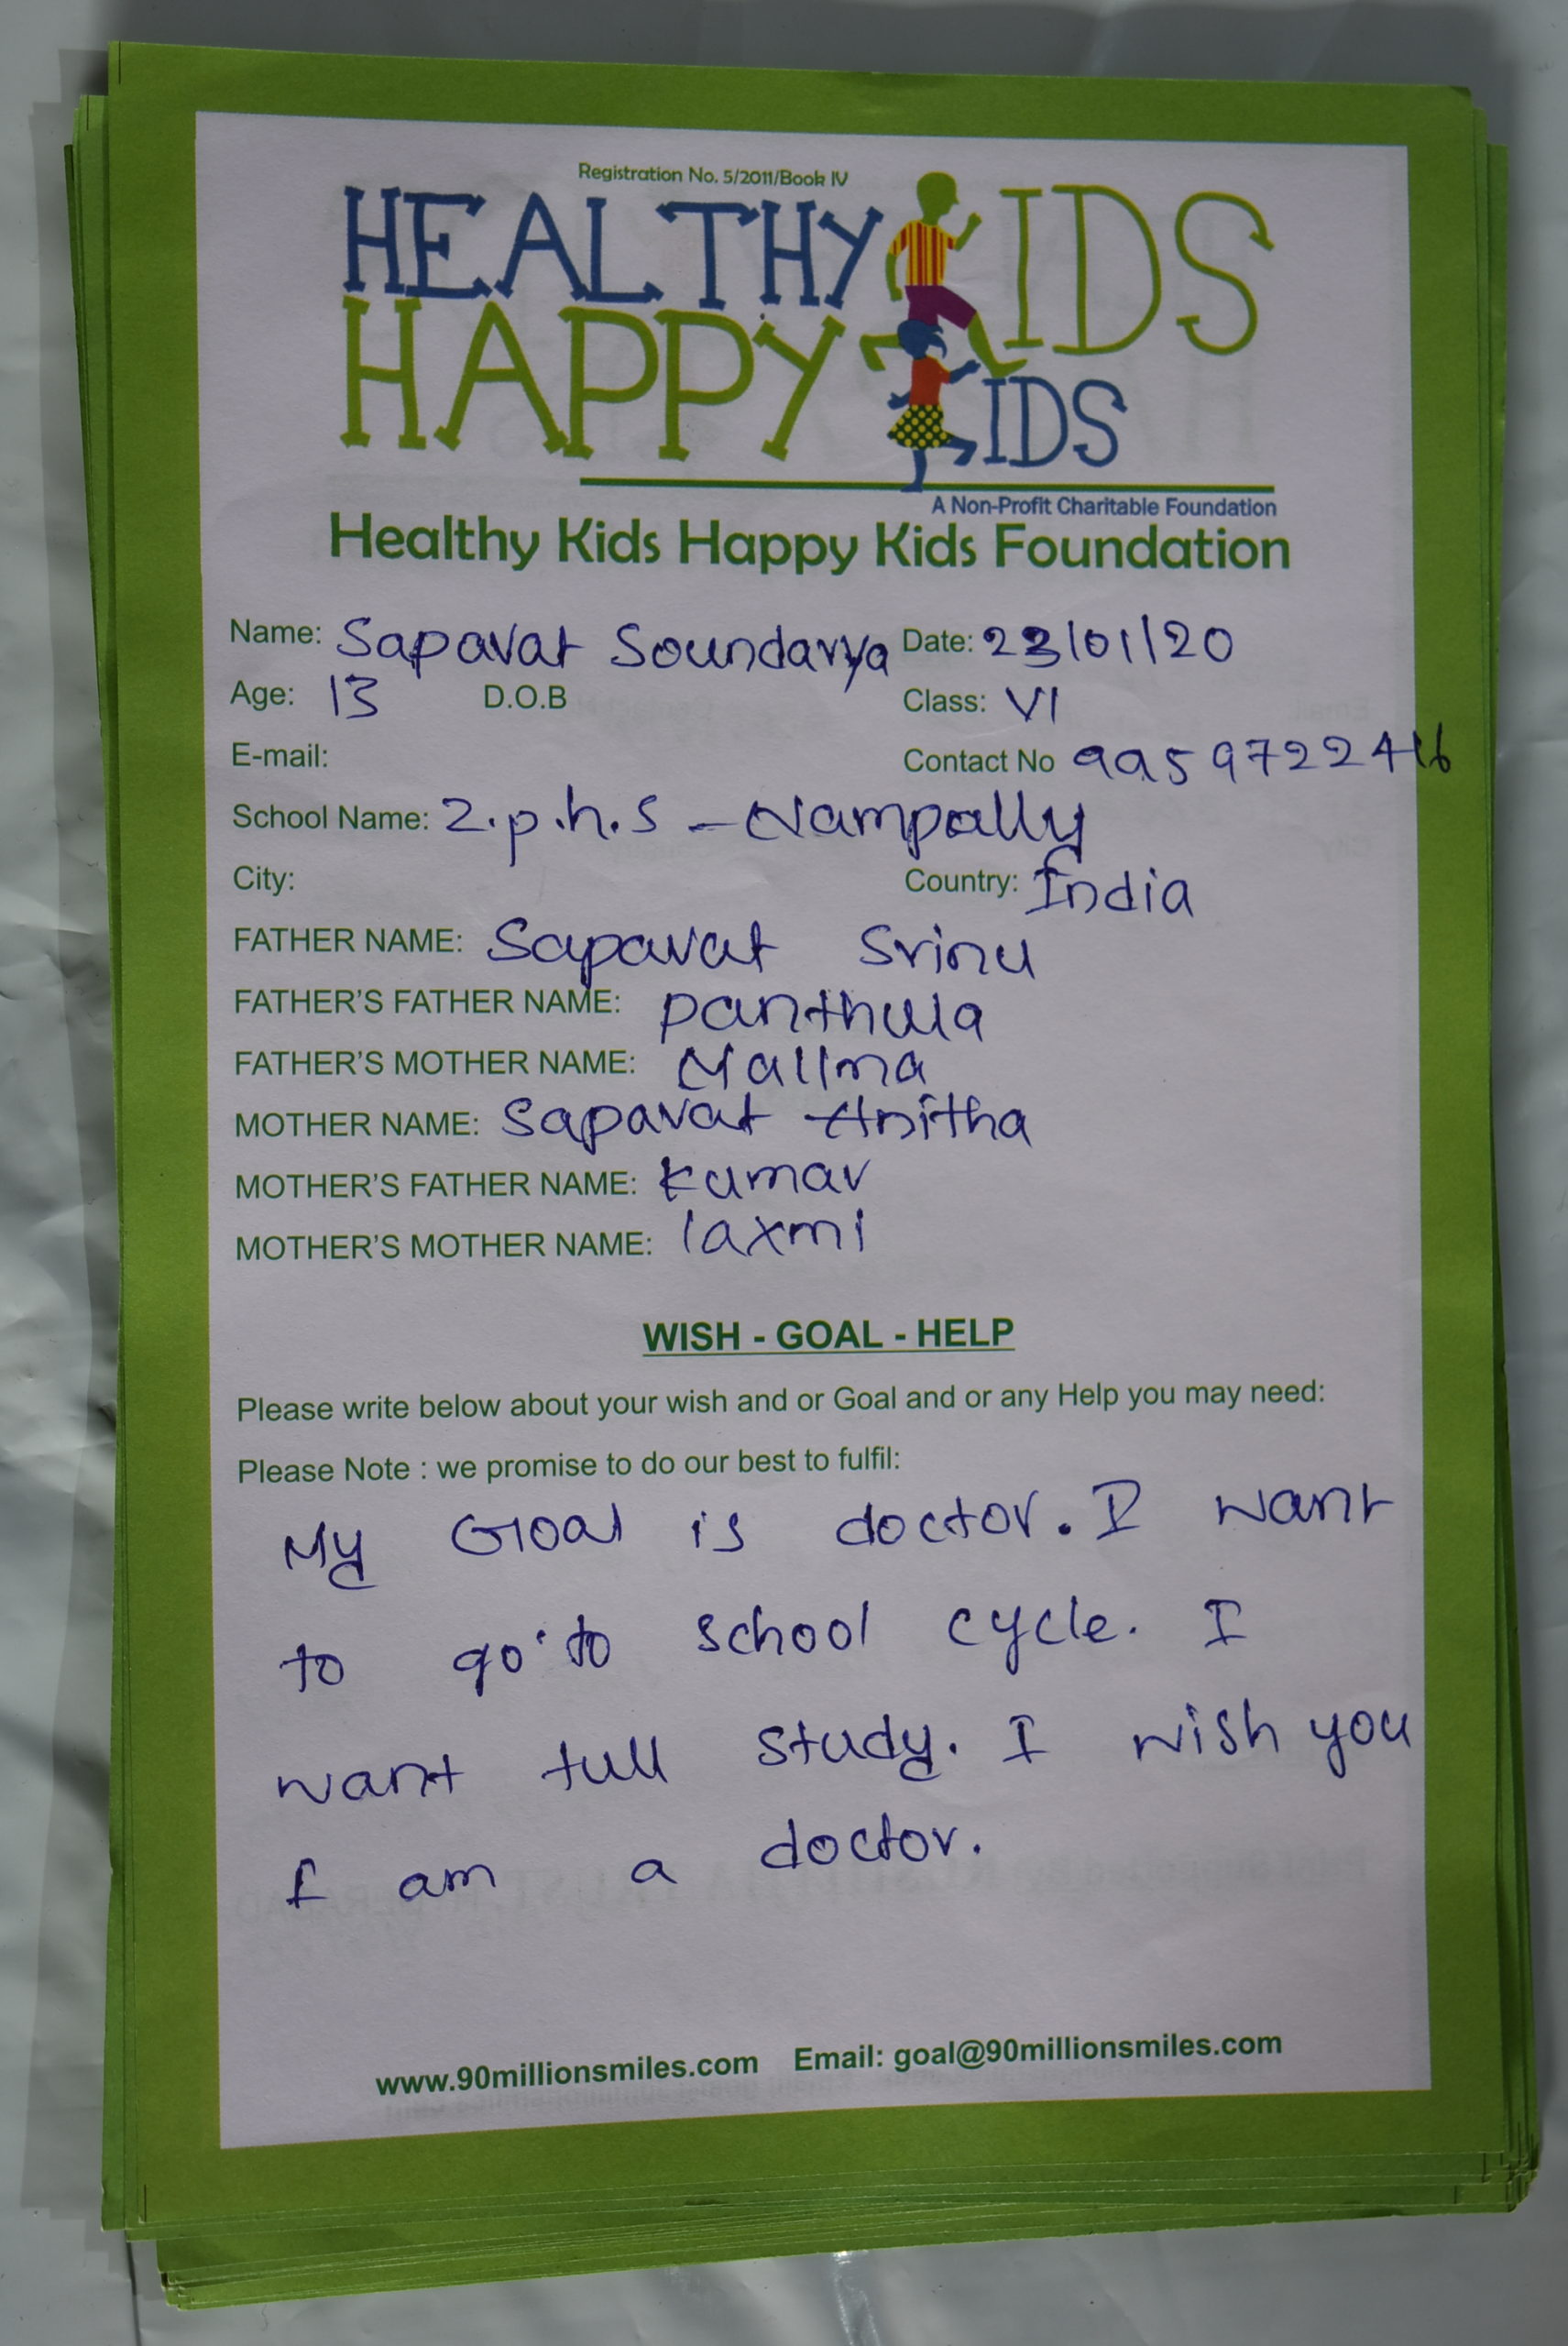 Registration No. 5/2011/Book IV
HEALTHY KIDS
HAPPY KIDS
A Non-Profit Charitable Foundation
Healthy Kids Happy Kids Foundation
Name: Sapavat Soundarya Date: 23/01/20
Age: 13 D.O.B Class: VI
E-mail: Contact No 9959722416
School Name: Z.p.h.s - Nampally
City: Country: India
FATHER NAME: Sapavat Srinu
FATHER'S FATHER NAME: panthula
FATHER'S MOTHER NAME: Mallma
MOTHER NAME: Sapavat Anitha
MOTHER'S FATHER NAME: kumar
MOTHER'S MOTHER NAME: laxmi
WISH - GOAL - HELP
Please write below about your wish and or Goal and or any Help you may need:
Please Note : we promise to do our best to fulfil:
My Goal is doctor. I want
to go to school cycle. I
want full study. I wish you
I am a doctor.
www.90millionsmiles.com Email: goal@90millionsmiles.com